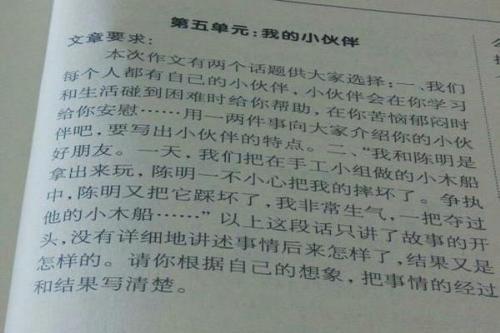 第五单元:我的小伙伴
文章要求:
本次作文有两个话题供大家选择:一、我们
每个人都有自己的小伙伴,小伙伴会在你学习
和生活碰到困难时给你帮助,在你苦恼郁闷时
给你安慰……用一两件事向大家介绍你的小伙
伴吧,要写出小伙伴的特点。二、“我和陈明是
好朋友。一天,我们把在手工小组做的小木船
拿出来玩,陈明一不小心把我的摔坏了。争执
中,陈明又把它踩坏了,我非常生气,一把夺过
他的小木船……”以上这段话只讲了故事的开
头,没有详细地讲述事情后来怎样了,结果又是
怎样的。请你根据自己的想象,把事情的经过
和结果写清楚。